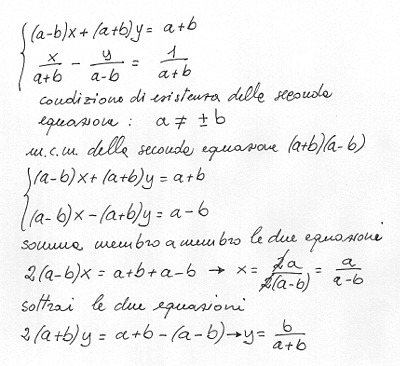 (a-b)x+(a+b)y = a+b
x/(a+b) - y/(a-b) = 1/(a+b)
condizione di esistenza della seconda
equazione : a ≠ ±b
m.c.m. della seconda equazione (a+b)(a-b)
(a-b)x+(a+b)y = a+b
(a-b)x-(a+b)y = a-b
somma membro a membro le due equazioni
2(a-b)x = a+b+a-b → x = 2a/2(a-b) = a/(a-b)
sottrai le due equazioni
2(a+b)y = a+b-(a-b) → y = b/(a+b)